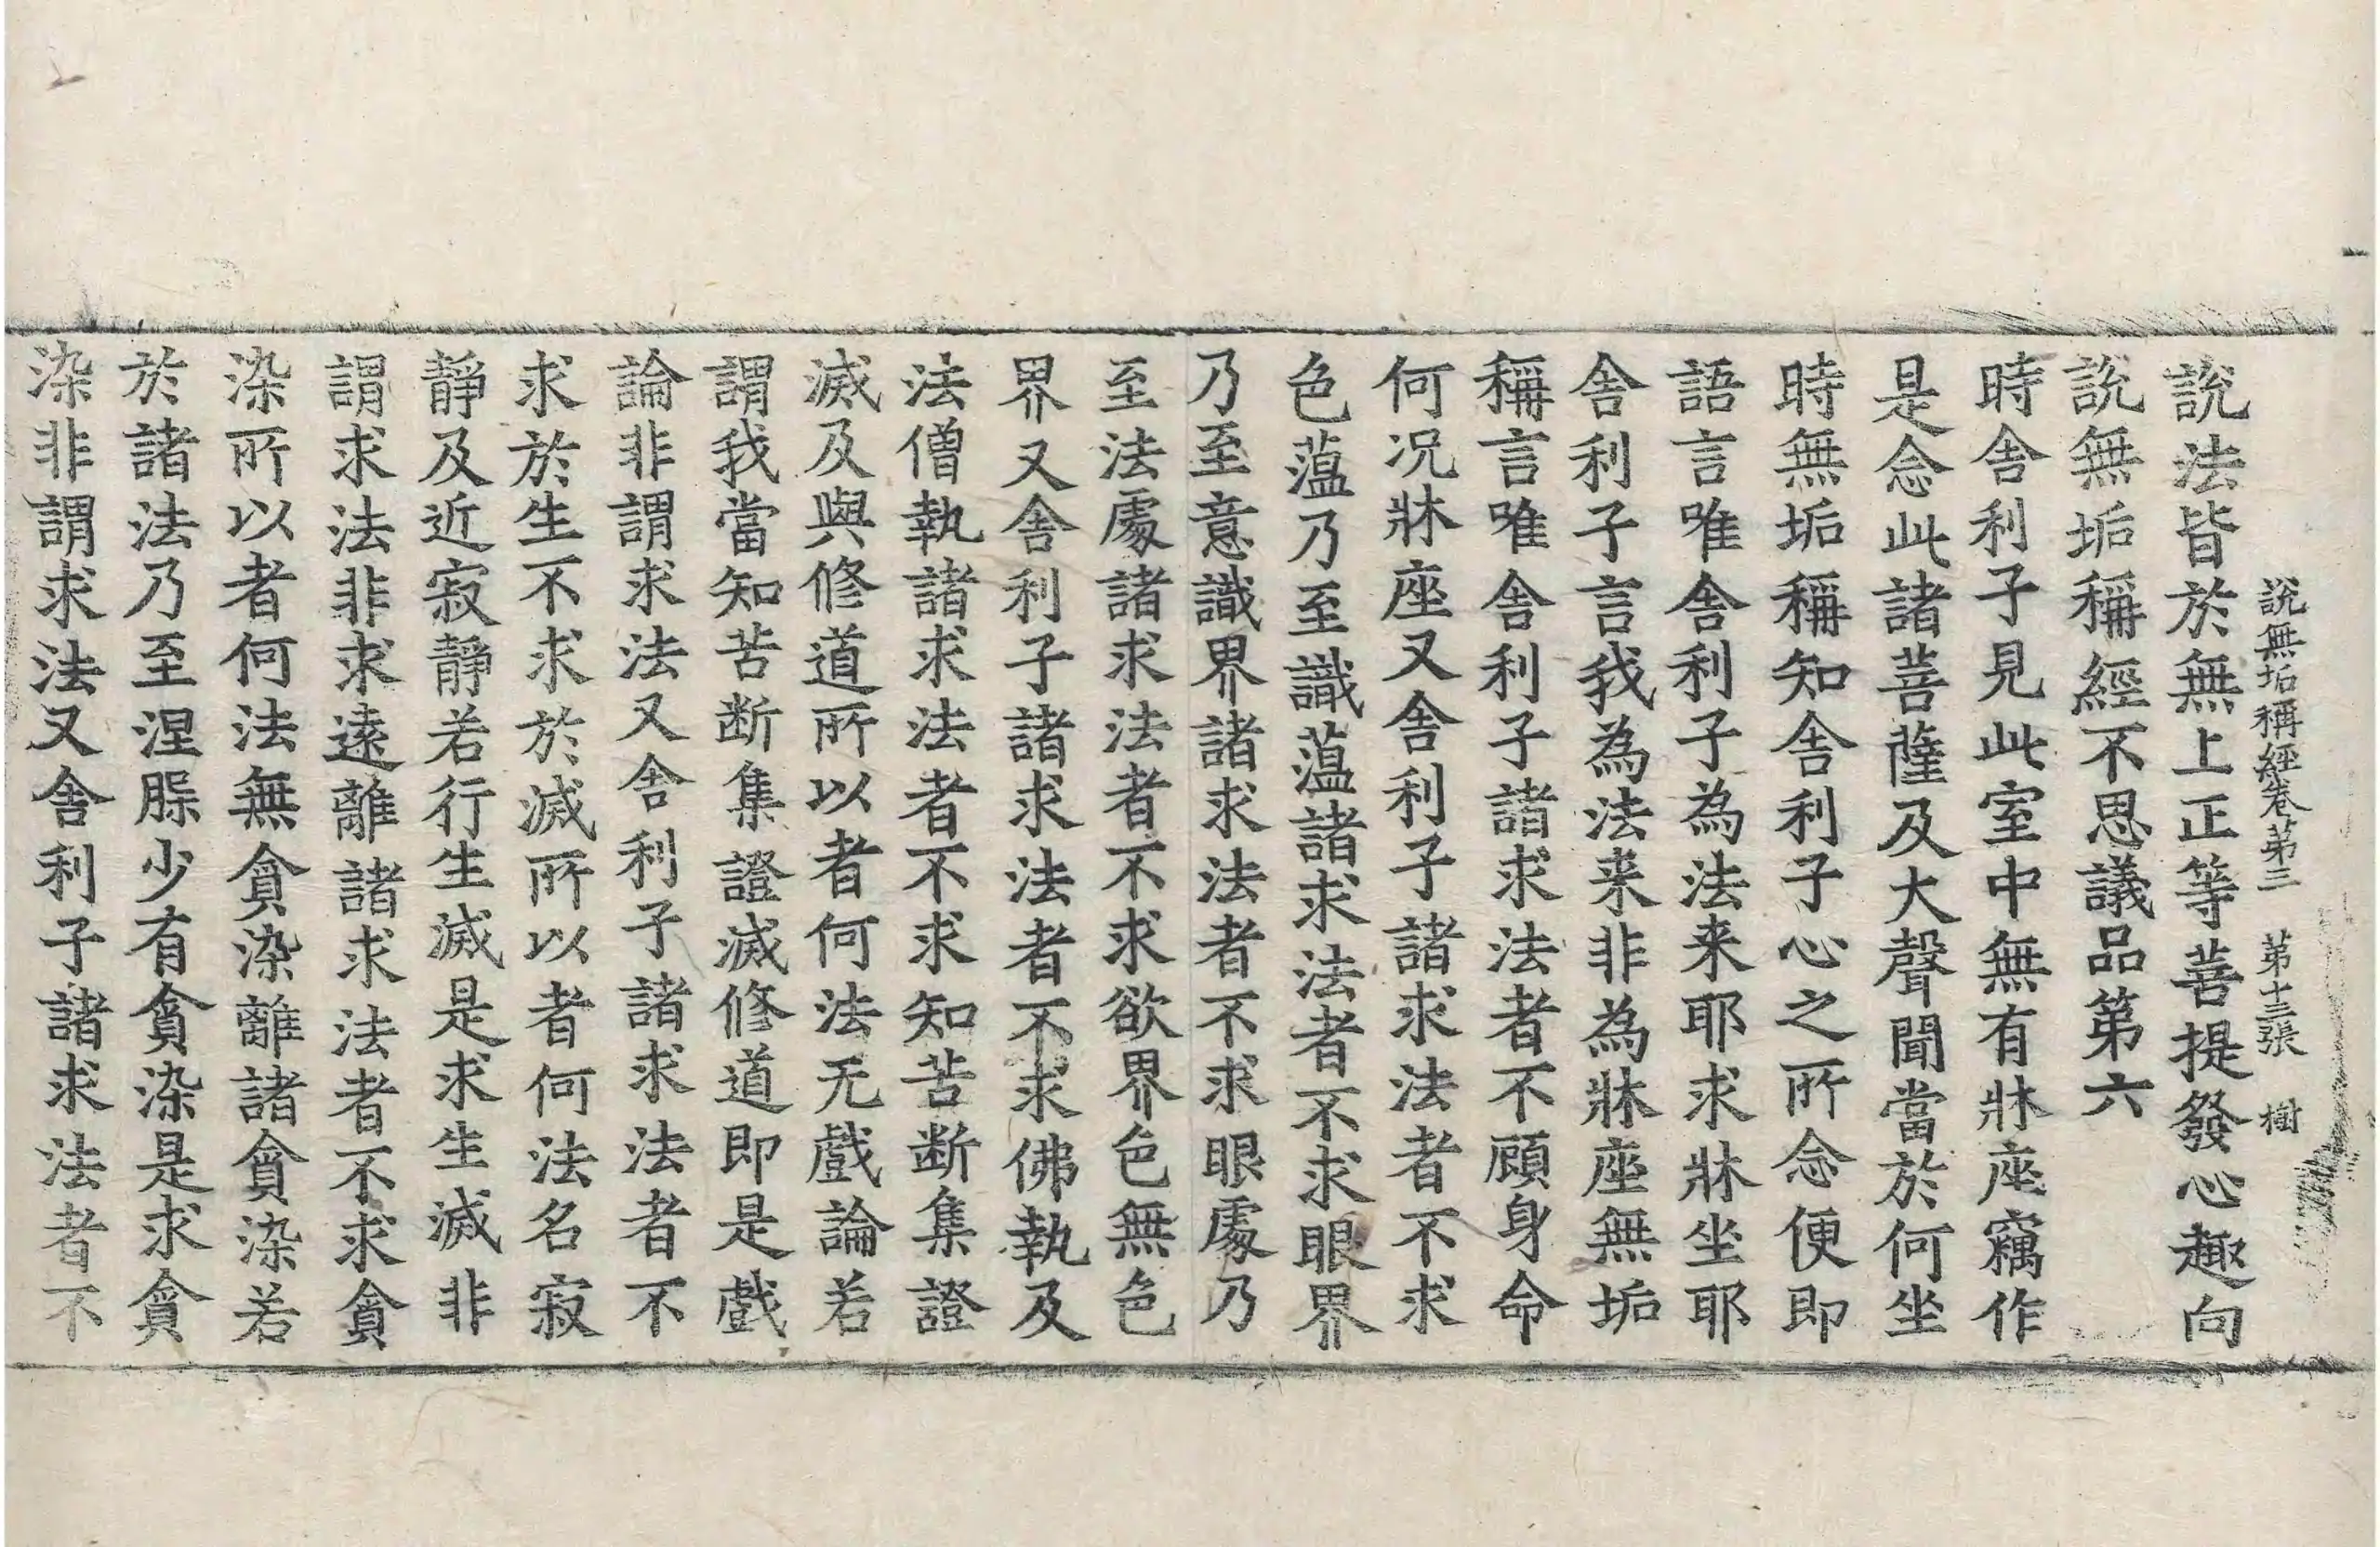 説無垢稱經卷第三 第十三張 樹
説法皆於無上正等菩提發心趣向
説無垢稱經不思議品第六
時舎利子見此室中無有牀座竊作
是念此諸菩薩及大聲聞當於何坐
時無垢稱知舎利子心之所念便即
語言唯舎利子為法来耶求牀坐耶
舎利子言我為法来非為牀座無垢
稱言唯舎利子諸求法者不顧身命
何况牀座又舎利子諸求法者不求
色藴乃至識藴諸求法者不求眼界
乃至意識界諸求法者不求眼處乃
至法處諸求法者不求欲界色無色
界又舎利子諸求法者不求佛執及
法僧執諸求法者不求知苦断集證
滅及與修道所以者何法无戲論若
謂我當知苦断集證滅修道即是戲
論非謂求法又舎利子諸求法者不
求於生不求於滅所以者何法名寂
靜及近寂靜若行生滅是求生滅非
謂求法非求遠離諸求法者不求貪
染所以者何法無貪染離諸貪染若
於諸法乃至涅槃少有貪染是求貪
染非謂求法又舎利子諸求法者不